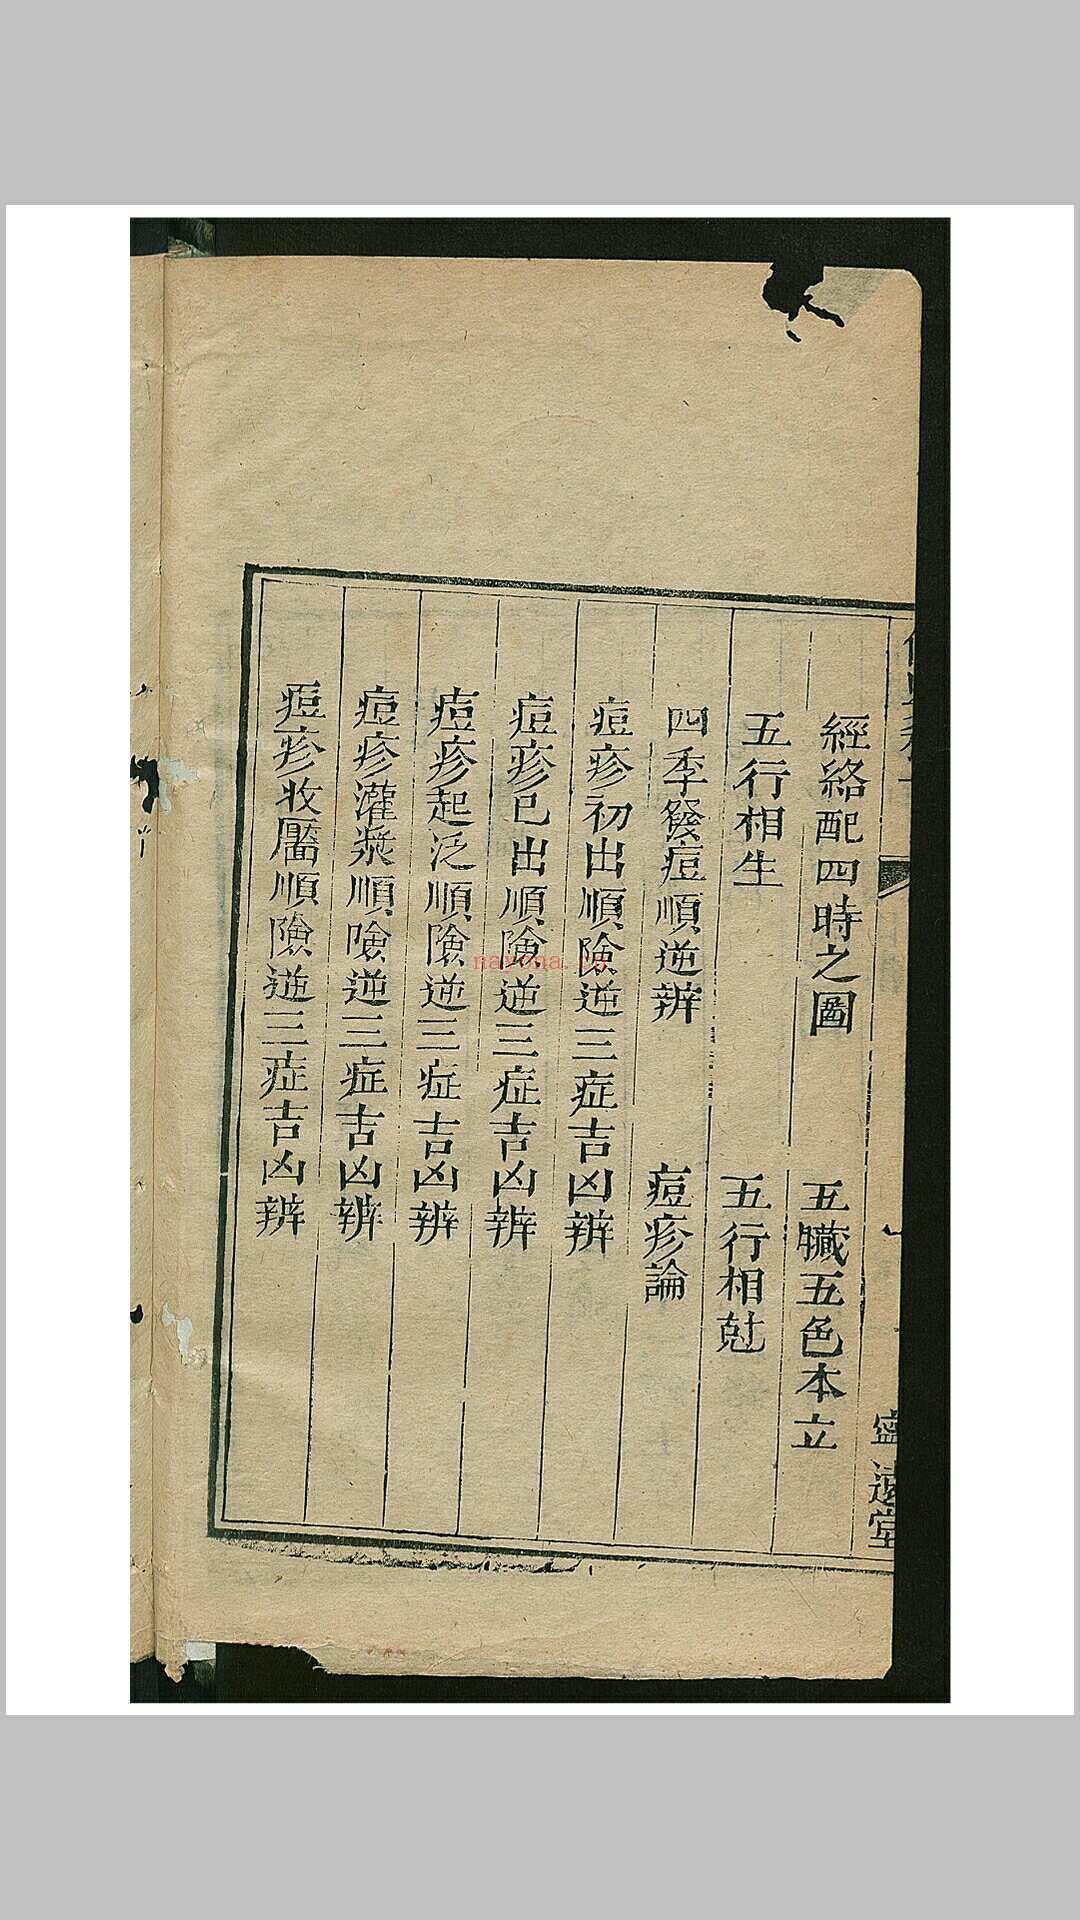 經絡配四時之圖　五臟五色本立
五行相生　五行相尅
四季發痘順逆辨　痘疹論
痘疹初出順險逆三症吉凶辨
痘疹已出順險逆三症吉凶辨
痘疹起泛順險逆三症吉凶辨
痘疹灌漿順險逆三症吉凶辨
痘疹收靨順險逆三症吉凶辨
寧遠堂